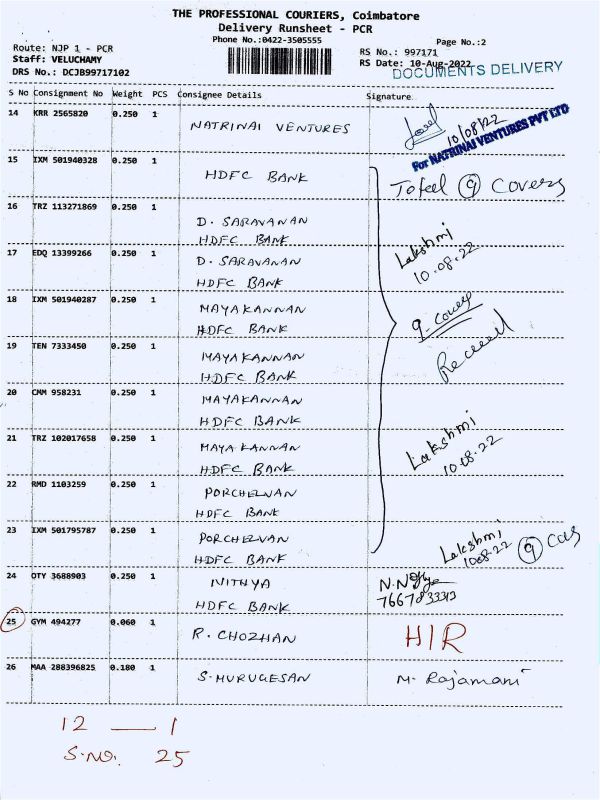 THE PROFESSIONAL COURIERS, Coimbatore
Delivery Runsheet - PCR
Phone No.:0422-3505555
Page No.:2
Route: NJP 1 - PCR
Staff: VELUCHAMY
DRS No.: DCJB99717102
RS No.: 997171
RS Date: 10-Aug-2022
DOCUMENTS DELIVERY
S No Consignment No Weight PCS Consignee Details Signature
14 KRR 2565820 0.250 1 NATRINAI VENTURES
10/08/22
For NATRINAI VENTURES PVT LTD
15 IXM 501940328 0.250 1 HDFC BANK
Total 9 Covers
16 TRZ 113271869 0.250 1 D. SARAVANAN
HDFC BANK
Lakshmi
10.08.22
17 EDQ 13399266 0.250 1 D. SARAVANAN
HDFC BANK
18 IXM 501940287 0.250 1 MAYAKANNAN
HDFC BANK
9 - covers
Received
19 TEN 7333450 0.250 1 MAYAKANNAN
HDFC BANK
20 CMM 958231 0.250 1 MAYAKANNAN
HDFC BANK
21 TRZ 102017658 0.250 1 MAYAKANNAN
HDFC BANK
Lakshmi
10.08.22
22 RMD 1103259 0.250 1 PORCHELVAN
HDFC BANK
23 IXM 501795787 0.250 1 PORCHELVAN
HDFC BANK
Lakshmi
10.08.22
9
24 OTY 3688903 0.250 1 NITHYA
HDFC BANK
25 GYM 494277 0.060 1 R. CHOZHAN
H/R
26 MAA 288396825 0.180 1 S. MURUGESAN
M. Rajamani
12 — 1
S.NO. 25